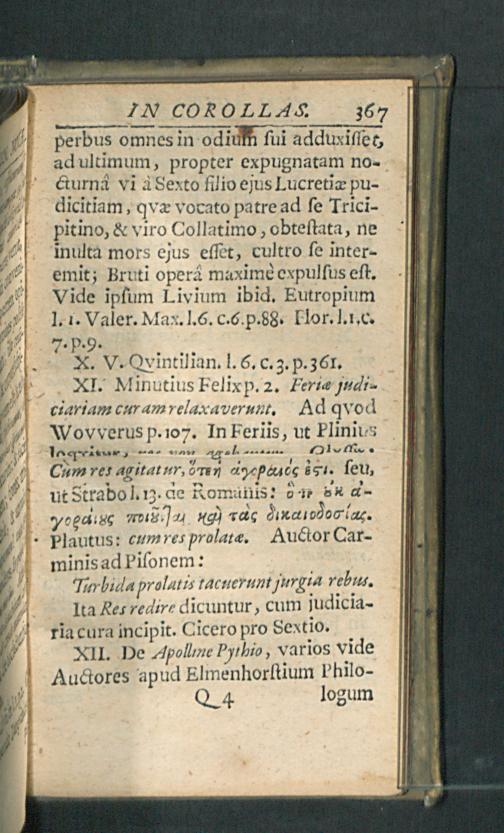 IN COROLLAS. 367
perbus omnes in odium sui adduxisset,
ad ultimum, propter expugnatam no-
cturnâ vi à Sexto filio ejus Lucretiæ pu-
dicitiam, qvæ vocato patre ad se Trici-
pitino, & viro Collatimo, obtestata, ne
inulta mors ejus esset, cultro se inter-
emit; Bruti operâ maximè expulsus est.
Vide ipsum Livium ibid. Eutropium
l. 1. Valer. Max. l.6. c.6.p.88. Flor. l.1.c.
7.p.9.
X. V. Qvintilian. l. 6. c. 3. p. 361.
XI. Minutius Felix p. 2. Feriæ judi-
ciariam curam relaxaverunt. Ad qvod
Wovverus p. 107. In Feriis, ut Plinius
loqvitur, non
Cum res agitatur, ἀγοραῖός ἐςι. seu,
ut Strabo l. 13. de Romanis: ὅτι ἐκ ἀ-
γοραίες ποιοῦνται καὶ τὰς δικαιοδοσίας.
Plautus: cum res prolatæ. Auctor Car-
minis ad Pisonem:
Turbida prolatis tacuerunt jurgia rebus.
Ita Res redire dicuntur, cum judicia-
ria cura incipit. Cicero pro Sextio.
XII. De Apolline Pythio, varios vide
Auctores apud Elmenhorstium Philo-
Q 4 logum